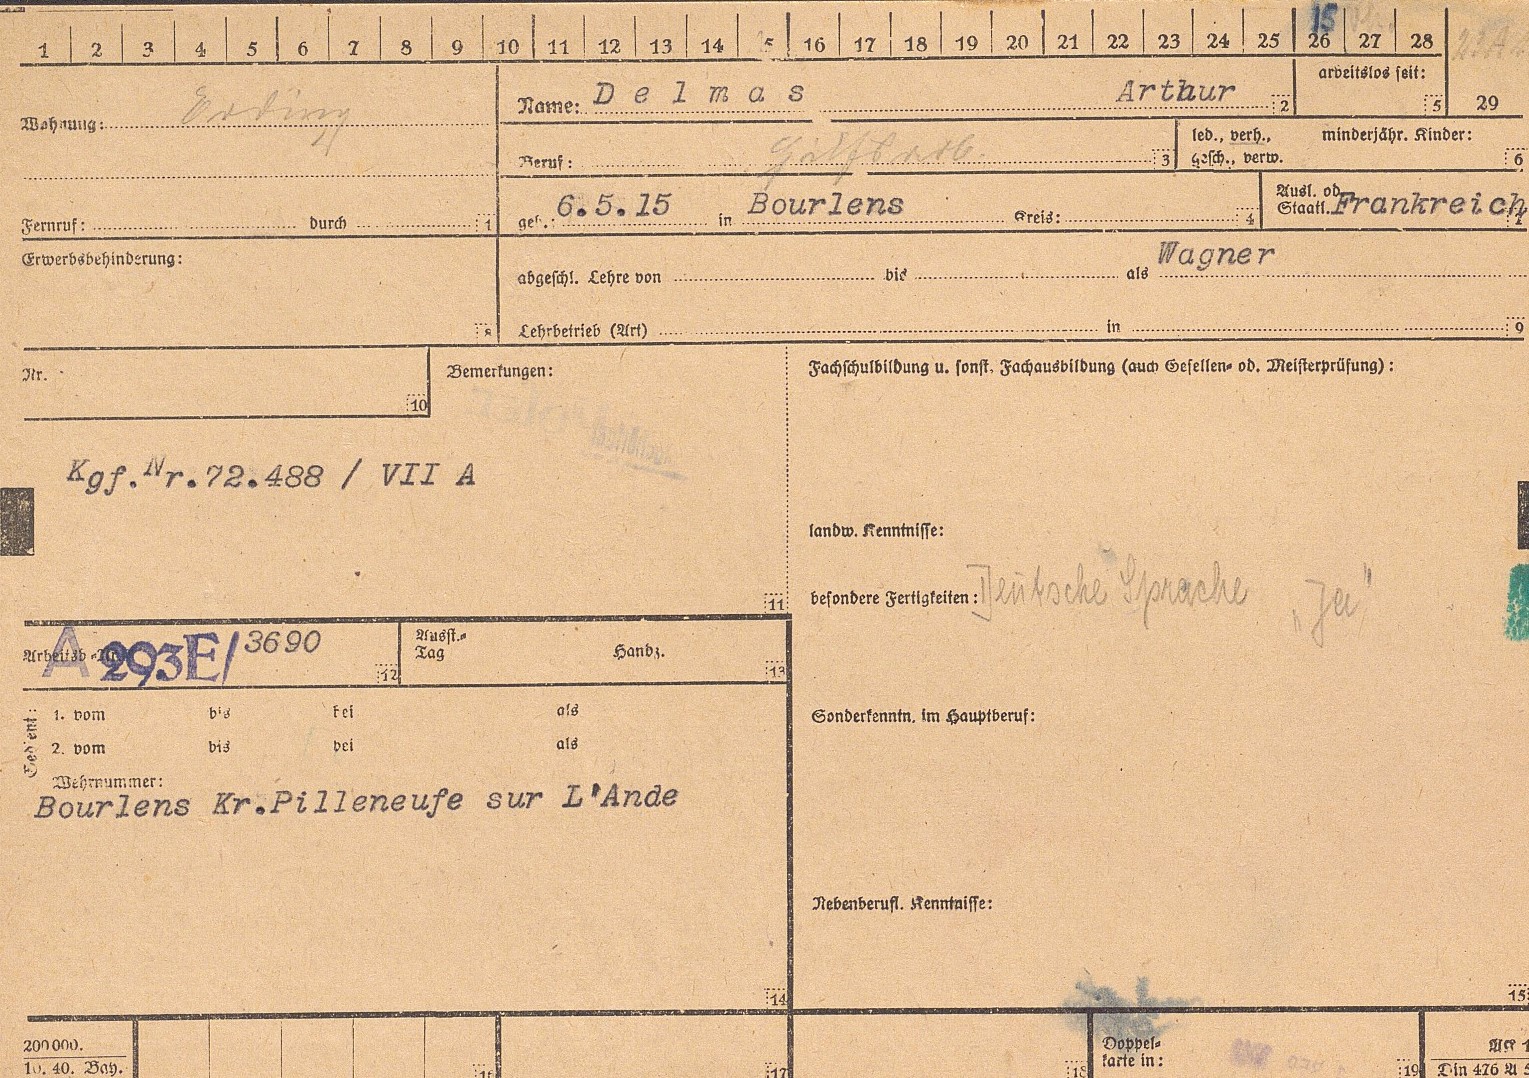 1 2 3 4 5 6 7 8 9 10 11 12 13 14 15 16 17 18 19 20 21 22 23 24 25 26 27 28
15
arbeitslos seit:
5 29
Wohnung: Erding
Name: Delmas Arthur 2
Beruf: Hilfsarb. 3
led., verh., minderjähr. Kinder:
gesch., verw. 6
Fernruf: durch 1
geb.: 6.5.15 in Bourlens Kreis: 4
Ausl. od.
Staatl. Frankreich 7
Erwerbsbehinderung:
8
Wagner
abgeschl. Lehre von bis als
Lehrbetrieb (Art) in 9
Nr.
10
Bemerkungen:
Kgf.Nr.72.488 / VII A
11
Fachschulbildung u. sonst. Fachausbildung (auch Gesellen- od. Meisterprüfung):
landw. Kenntnisse:
besondere Fertigkeiten: Deutsche Sprache „Ja"
Arbeitsb.-Nr. A 293E/3690 12
Ausst.-
Tag Handz. 13
Gedient:
1. vom bis bei als
2. vom bis bei als
Wehrnummer:
Bourlens Kr.Pilleneufe sur L'Ande
14
Sonderkenntn. im Hauptberuf:
Nebenberufl. Kenntnisse:
15
200000.
10. 40. Bay.
16 17 18
Doppel-
karte in: 19
Din 476 A 5